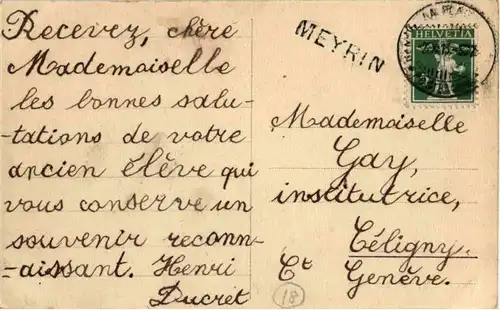 Recevez, chère
Mademoiselle
les bonnes salu-
-tations de votre
ancien élève qui
vous conserve un
souvenir reconn-
-aissant. Henri
Ducret
MEYRIN
HELVETIA
Mademoiselle
Gay,
institutrice,
Céligny.
Ct Genève.
18